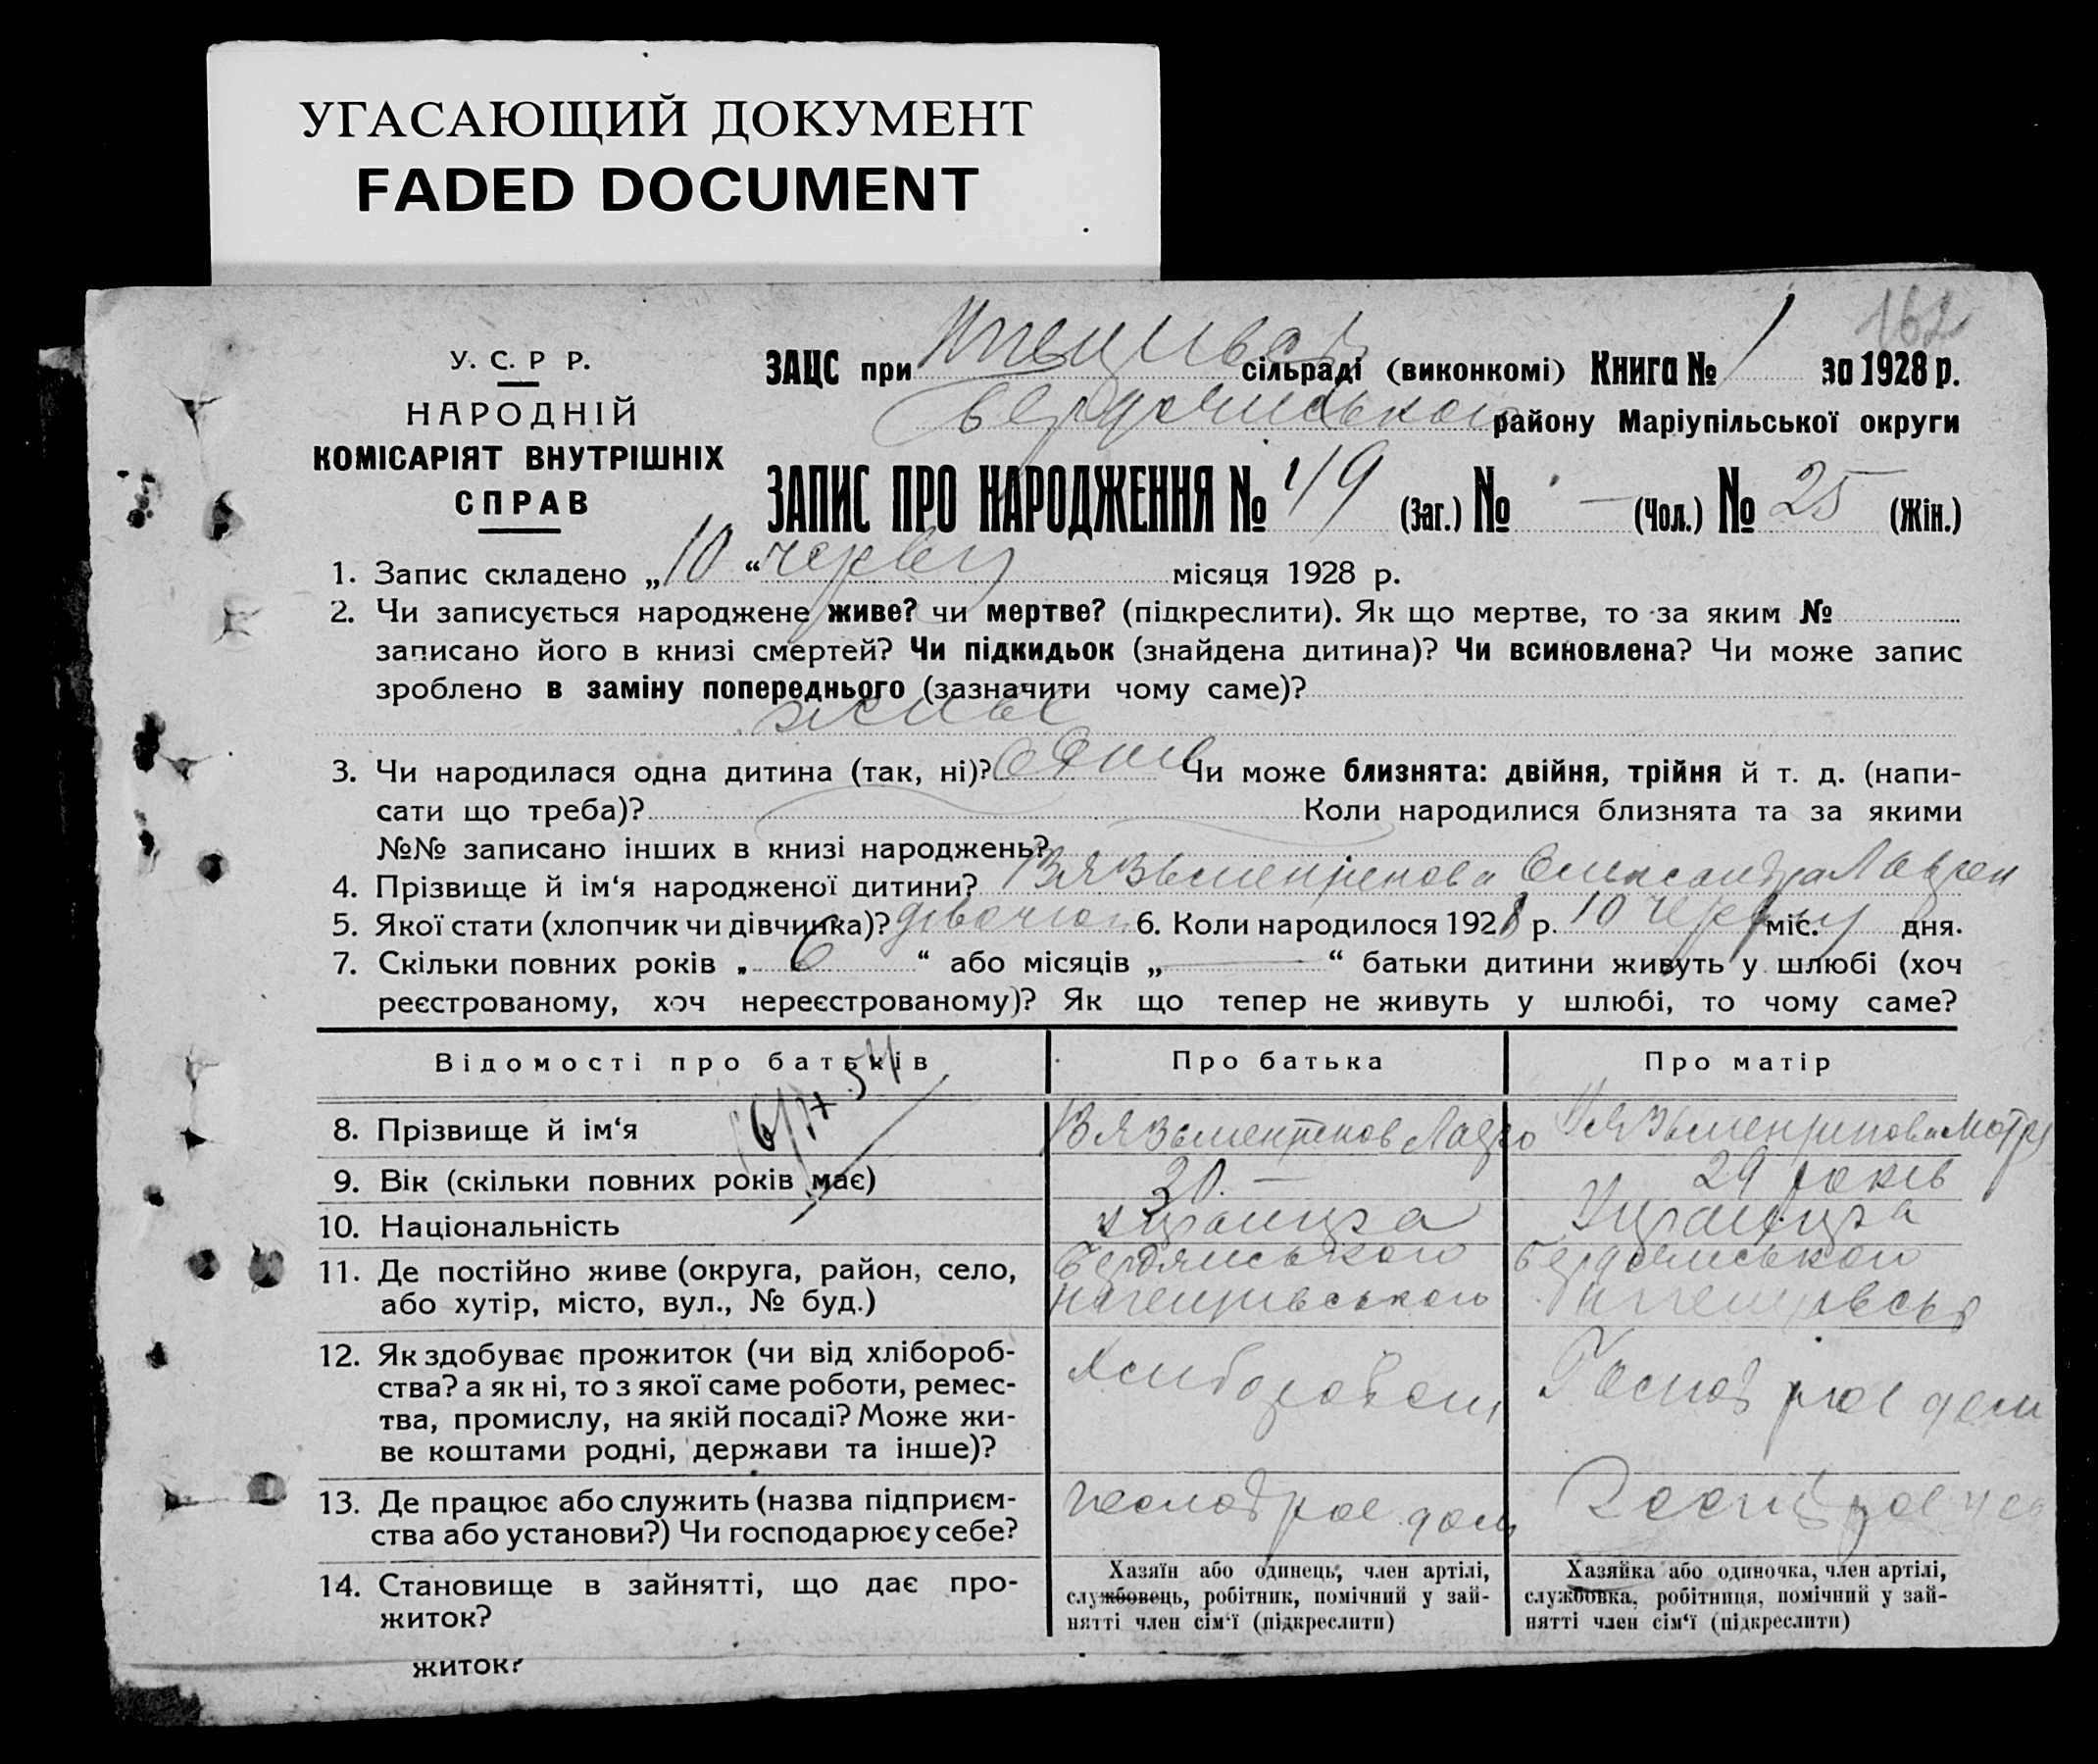 УГАСАЮЩИЙ ДОКУМЕНТ
FADED DOCUMENT
162
У. С. Р Р.
НАРОДНІЙ
КОМІСАРІЯТ ВНУТРІШНІХ
СПРАВ
ЗАЦС при сільраді (виконкомі) Книга № 1 за 1928 р.
Бердянського району Маріупільської округи
ЗАПИС ПРО НАРОДЖЕННЯ № 49 (Заг.) № — (Чол.) № 25 (Жін.)
1. Запис складено „10“ червня місяця 1928 р.
2. Чи записується народжене живе? чи мертве? (підкреслити). Як що мертве, то за яким №
записано його в книзі смертей? Чи підкидьок (знайдена дитина)? Чи всиновлена? Чи може запис
зроблено в заміну попереднього (зазначити чому саме)?
живе
3. Чи народилася одна дитина (так, ні)? одна Чи може близнята: двійня, трійня й т. д. (напи-
сати що треба)? Коли народилися близнята та за якими
№№ записано інших в книзі народжень?
4. Прізвище й ім‘я народженої дитини? Олександра
5. Якої стати (хлопчик чи дівчинка)? 6. Коли народилося 1928 р. 10 червня міс. дня.
7. Скільки повних років „ 6 “ або місяців „ — “ батьки дитини живуть у шлюбі (хоч
реєстрованому, хоч нереєстрованому)? Як що тепер не живуть у шлюбі, то чому саме?
Відомості про батьків
Про батька
Про матір
8. Прізвище й ім‘я
9. Вік (скільки повних років має)
30. —
29 років
10. Національність
11. Де постійно живе (округа, район, село,
або хутір, місто, вул., № буд.)
Бердянського
Бердянського
12. Як здобуває прожиток (чи від хлібороб-
ства? а як ні, то з якої саме роботи, ремес-
тва, промислу, на якій посаді? Може жи-
ве коштами родні, держави та інше)?
13. Де працює або служить (назва підприєм-
ства або установи?) Чи господарює у себе?
14. Становище в зайнятті, що дає про-
житок?
Хазяїн або одинець, член артілі,
службовець, робітник, помічний у зай-
нятті член сім‘ї (підкреслити)
Хазяйка або одиночка, член артілі,
службовка, робітниця, помічний у зай-
нятті член сім‘ї (підкреслити)
житок?